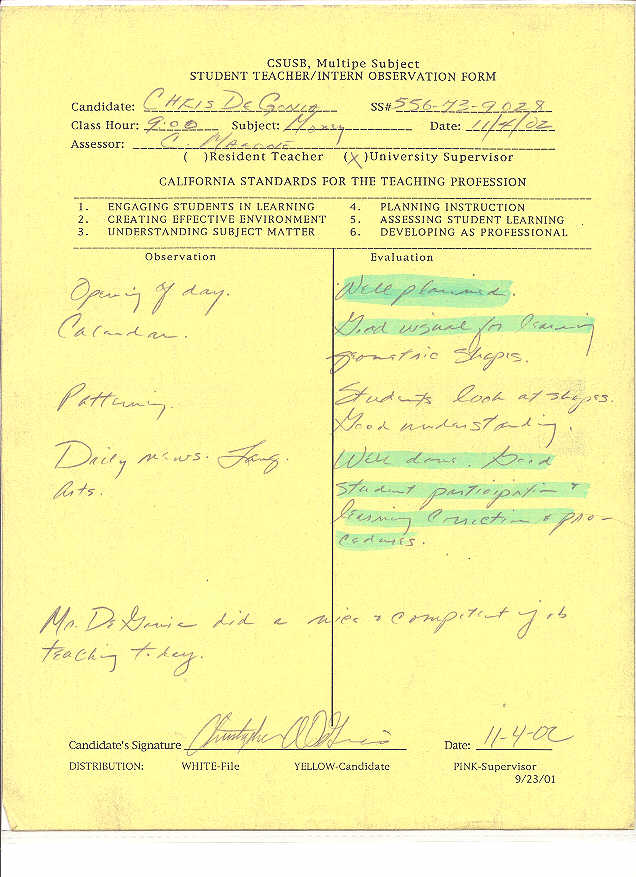 CSUSB, Multipe Subject
STUDENT TEACHER/INTERN OBSERVATION FORM
Candidate: CHRIS DeGonia SS# 556-73-9028
Class Hour: 9:00 Subject: Money Date: 11/4/02
Assessor: C. Malone
( )Resident Teacher (X)University Supervisor
CALIFORNIA STANDARDS FOR THE TEACHING PROFESSION
1. ENGAGING STUDENTS IN LEARNING 4. PLANNING INSTRUCTION
2. CREATING EFFECTIVE ENVIRONMENT 5. ASSESSING STUDENT LEARNING
3. UNDERSTANDING SUBJECT MATTER 6. DEVELOPING AS PROFESSIONAL
Observation Evaluation
Opening of day. Well planned.
Calandar. Good visual for learning
geometric shapes.
Patterning. Students look at shapes.
Good understanding.
Daily news. Lang. Well done. Good
Arts. student participation &
learning correction & pro-
cedures.
Mr. DeGonia did a nice & competent job
teaching today.
Candidate's Signature Christopher DeGonia Date: 11-4-02
DISTRIBUTION: WHITE-File YELLOW-Candidate PINK-Supervisor
9/23/01